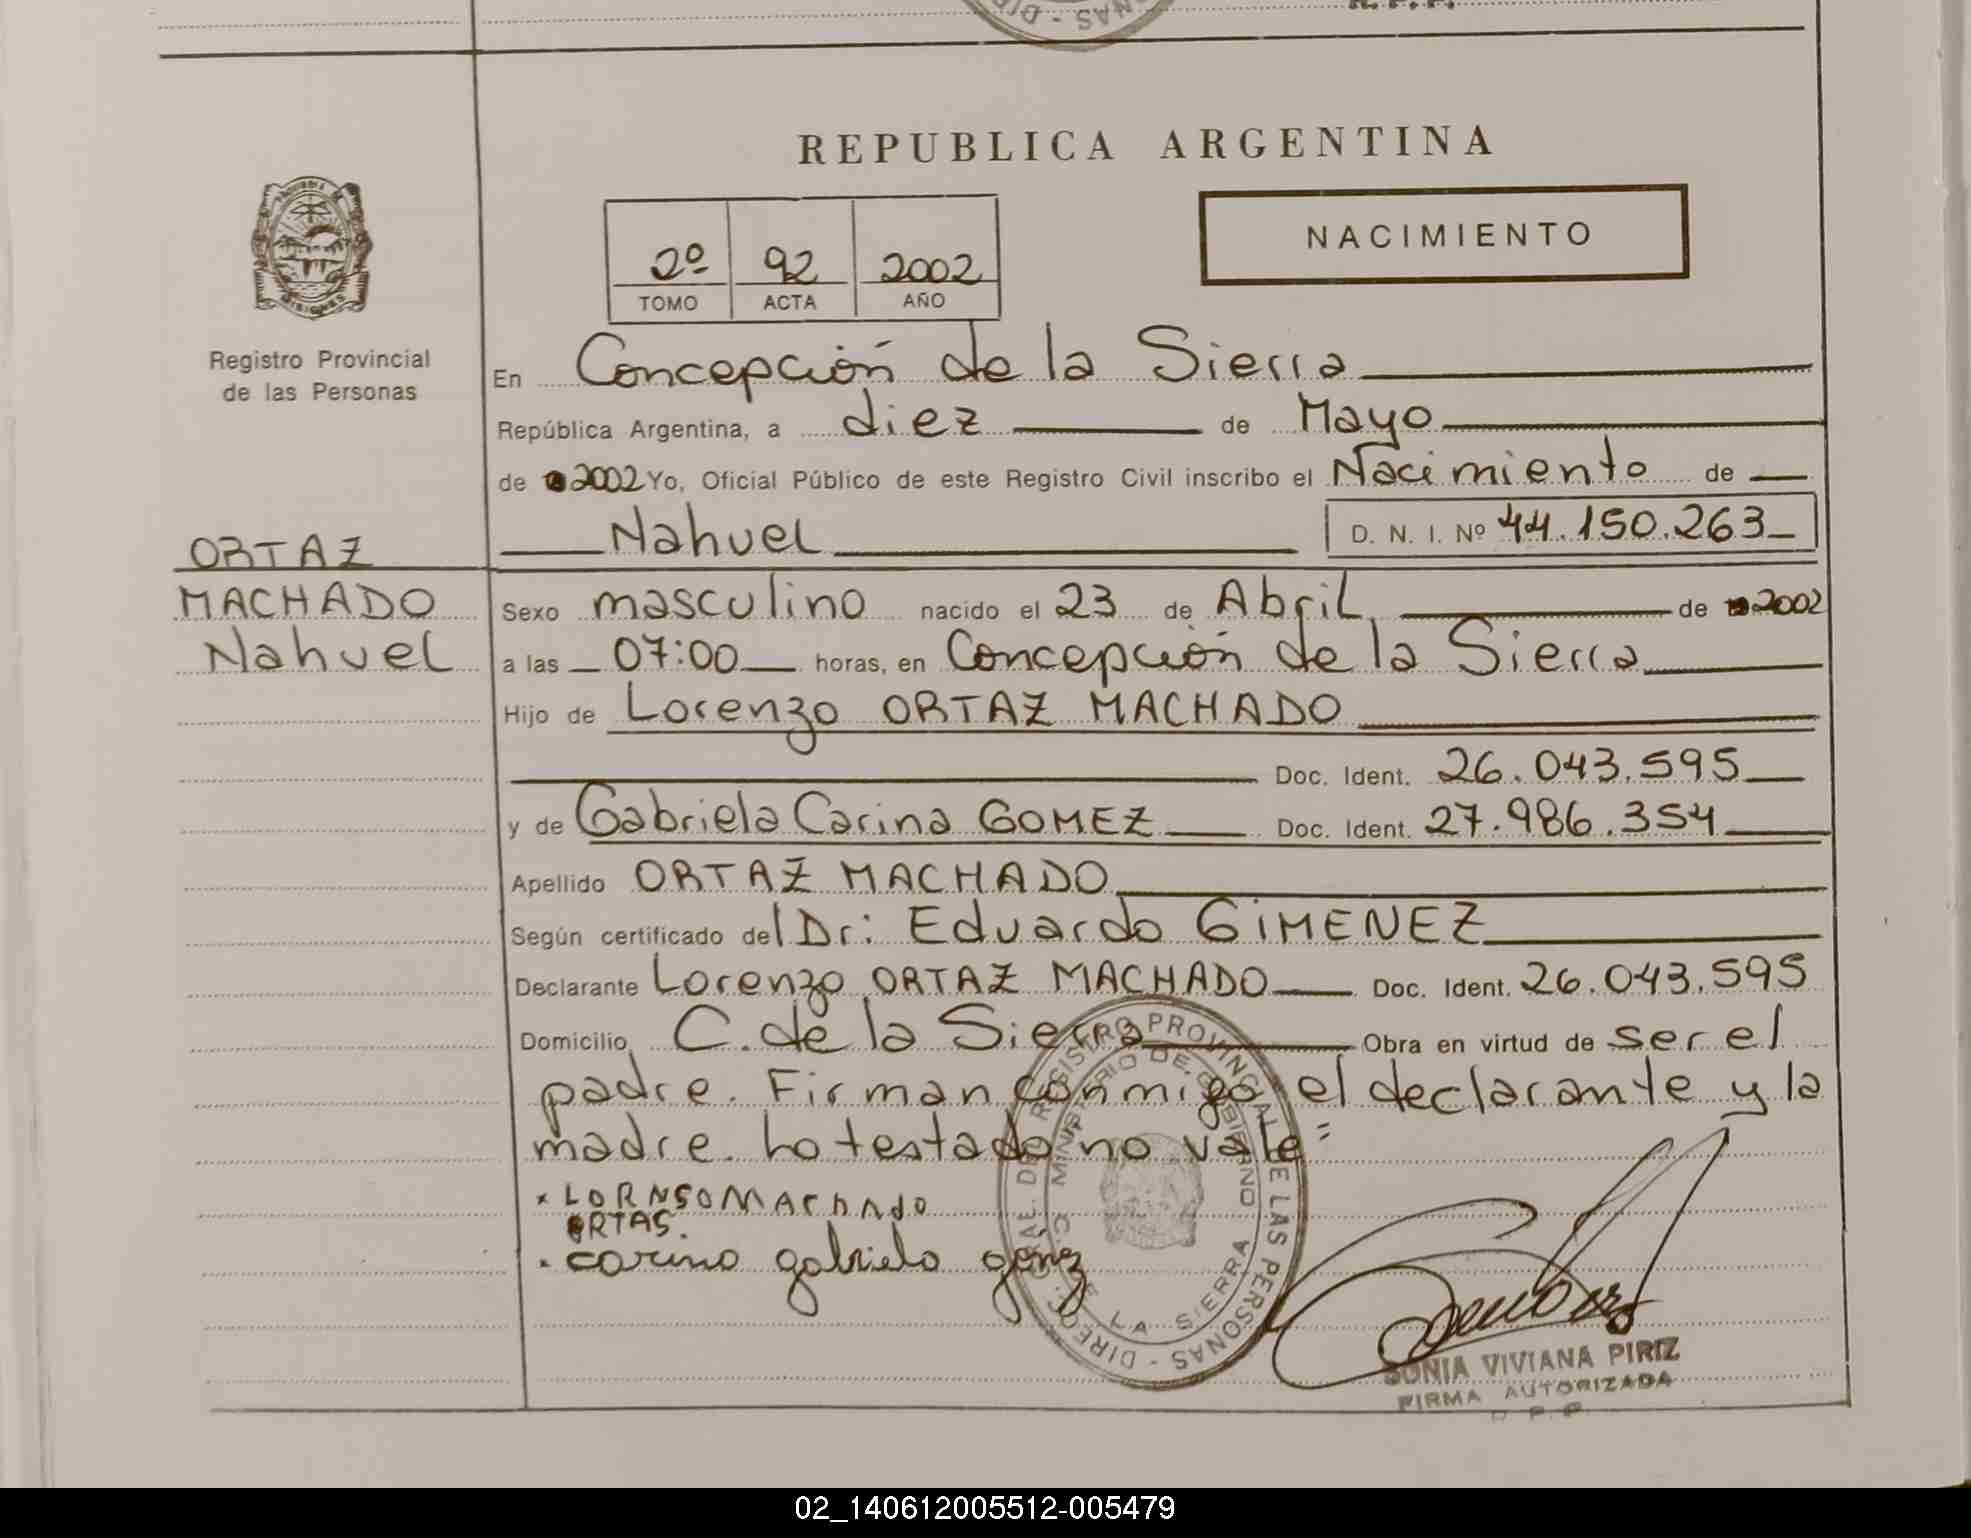 REPUBLICA ARGENTINA
NACIMIENTO
2º 92 2002
TOMO ACTA AÑO
Registro Provincial
de las Personas
En Concepción de la Sierra
República Argentina, a diez de Mayo
de 2002 Yo, Oficial Público de este Registro Civil inscribo el Nacimiento de
Nahuel D. N. I. Nº 44.150.263
ORTAZ
MACHADO
Nahuel
Sexo masculino nacido el 23 de Abril de 2002
a las 07:00 horas, en Concepción de la Sierra
Hijo de Lorenzo ORTAZ MACHADO
Doc. Ident. 26.043.595
y de Gabriela Carina GOMEZ Doc. Ident. 27.986.354
Apellido ORTAZ MACHADO
Según certificado del Dr: Eduardo GIMENEZ
Declarante Lorenzo ORTAZ MACHADO Doc. Ident. 26.043.595
Domicilio C. de la Sierra Obra en virtud de ser el
padre. Firman conmigo el declarante y la
madre. Lo testado no vale=
x LORNSO MACHADO
ORTAS.
. carina gabriela gomz
REGISTRO PROVINCIAL DE LAS PERSONAS - DIREC
MINISTERIO DE GOBIERNO
C. DE LA SIERRA
SONIA VIVIANA PIRIZ
FIRMA AUTORIZADA
02_140612005512-005479